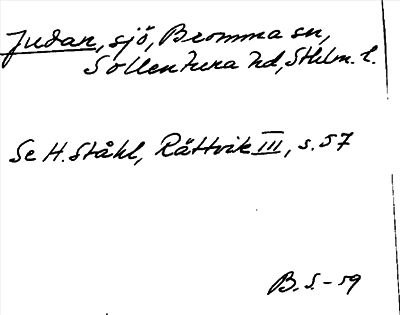 Judan, sjö, Bromma sn,
Sollentuna hd, Sthlm. l.
Se H. Ståhl, Rättvik III, s. 57
B. S. - 59